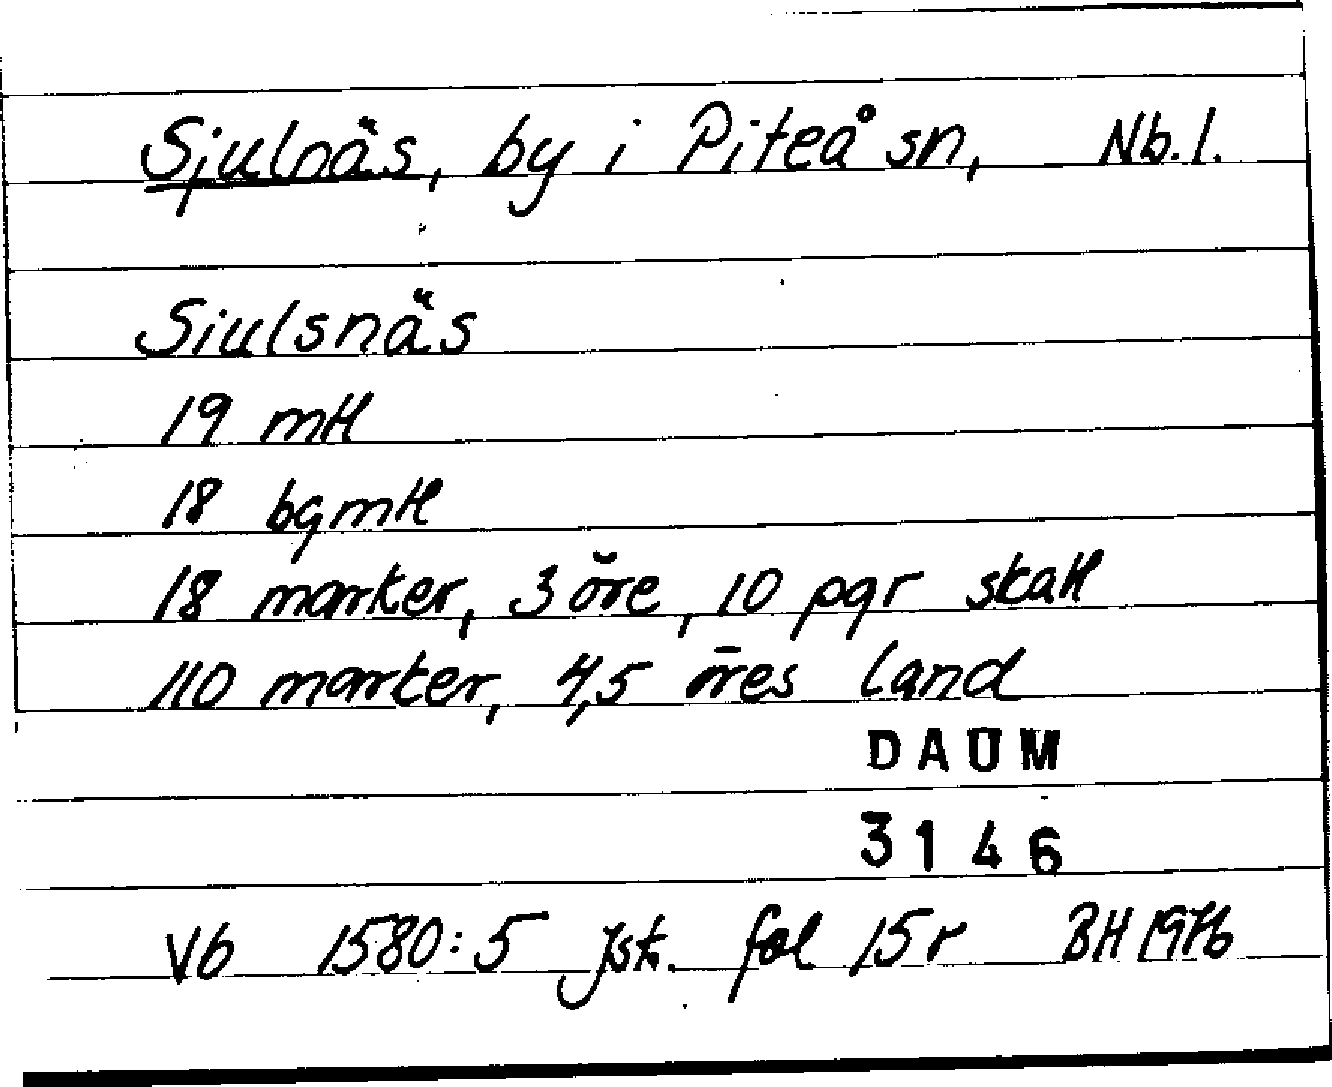 Sjulnäs, by i Piteå sn, Nb. l.
Siulsnäs
19 mtl
18 bgmtl
18 marker, 3 öre, 10 pgr skatt
110 marker, 4,5 öres land
DAUM
3146
Vb 1580:5 jsk. fol 15 r BH 1976